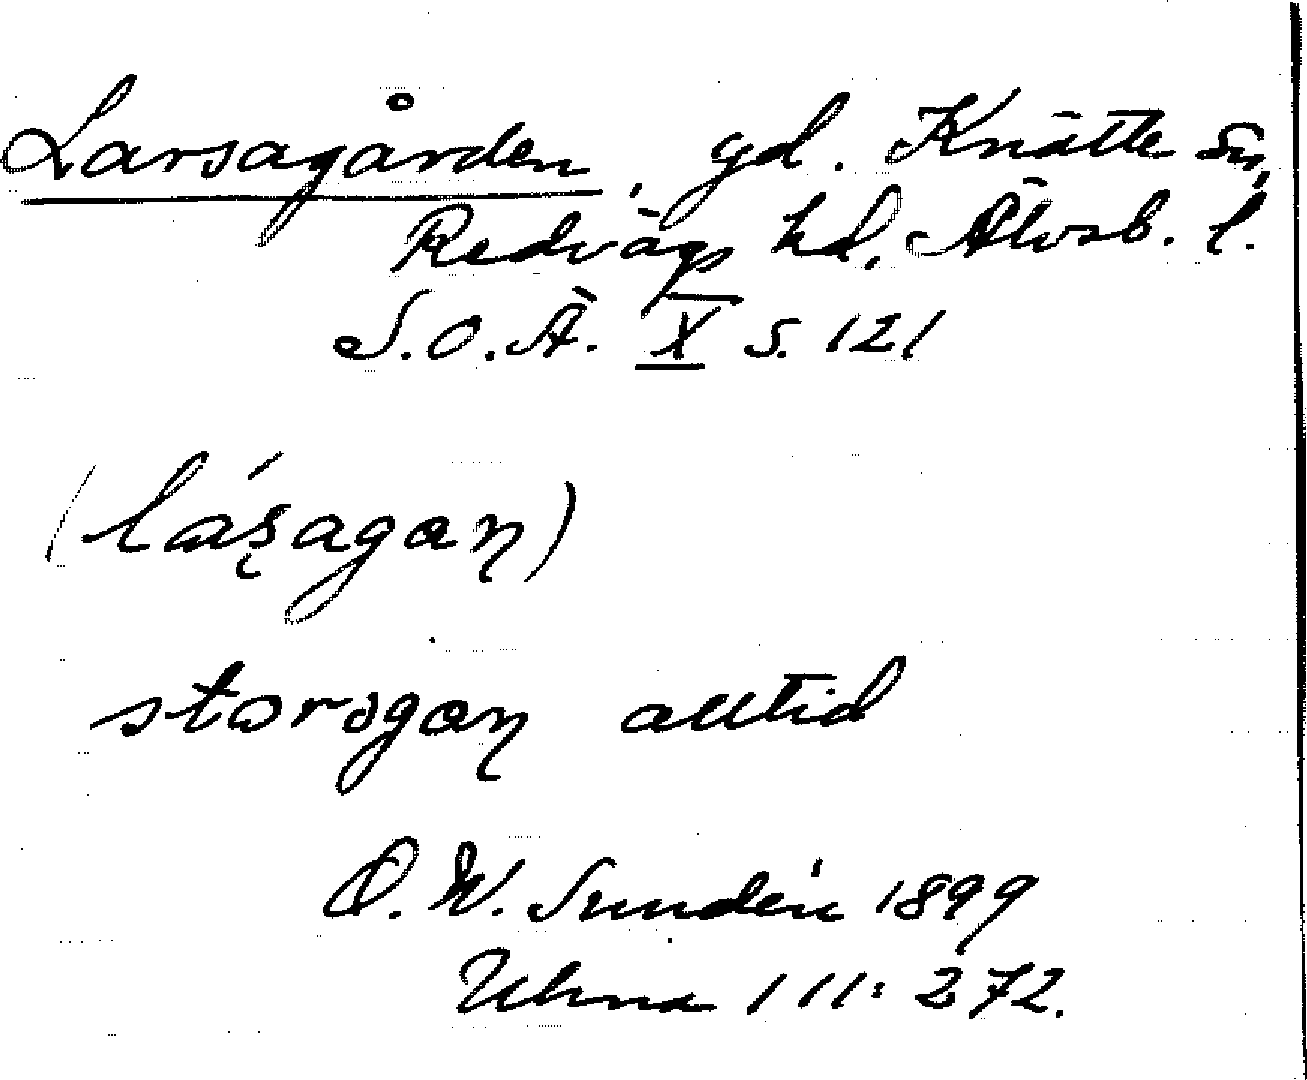 Larsagården, gd. Knätte sn,
Redvägs hd, Älvsb. l.
S.O.Ä. X s. 121
(lásagaɳ)
storsgaɳ alltid
D. W. Sundén 1899
Uhma 111: 272.